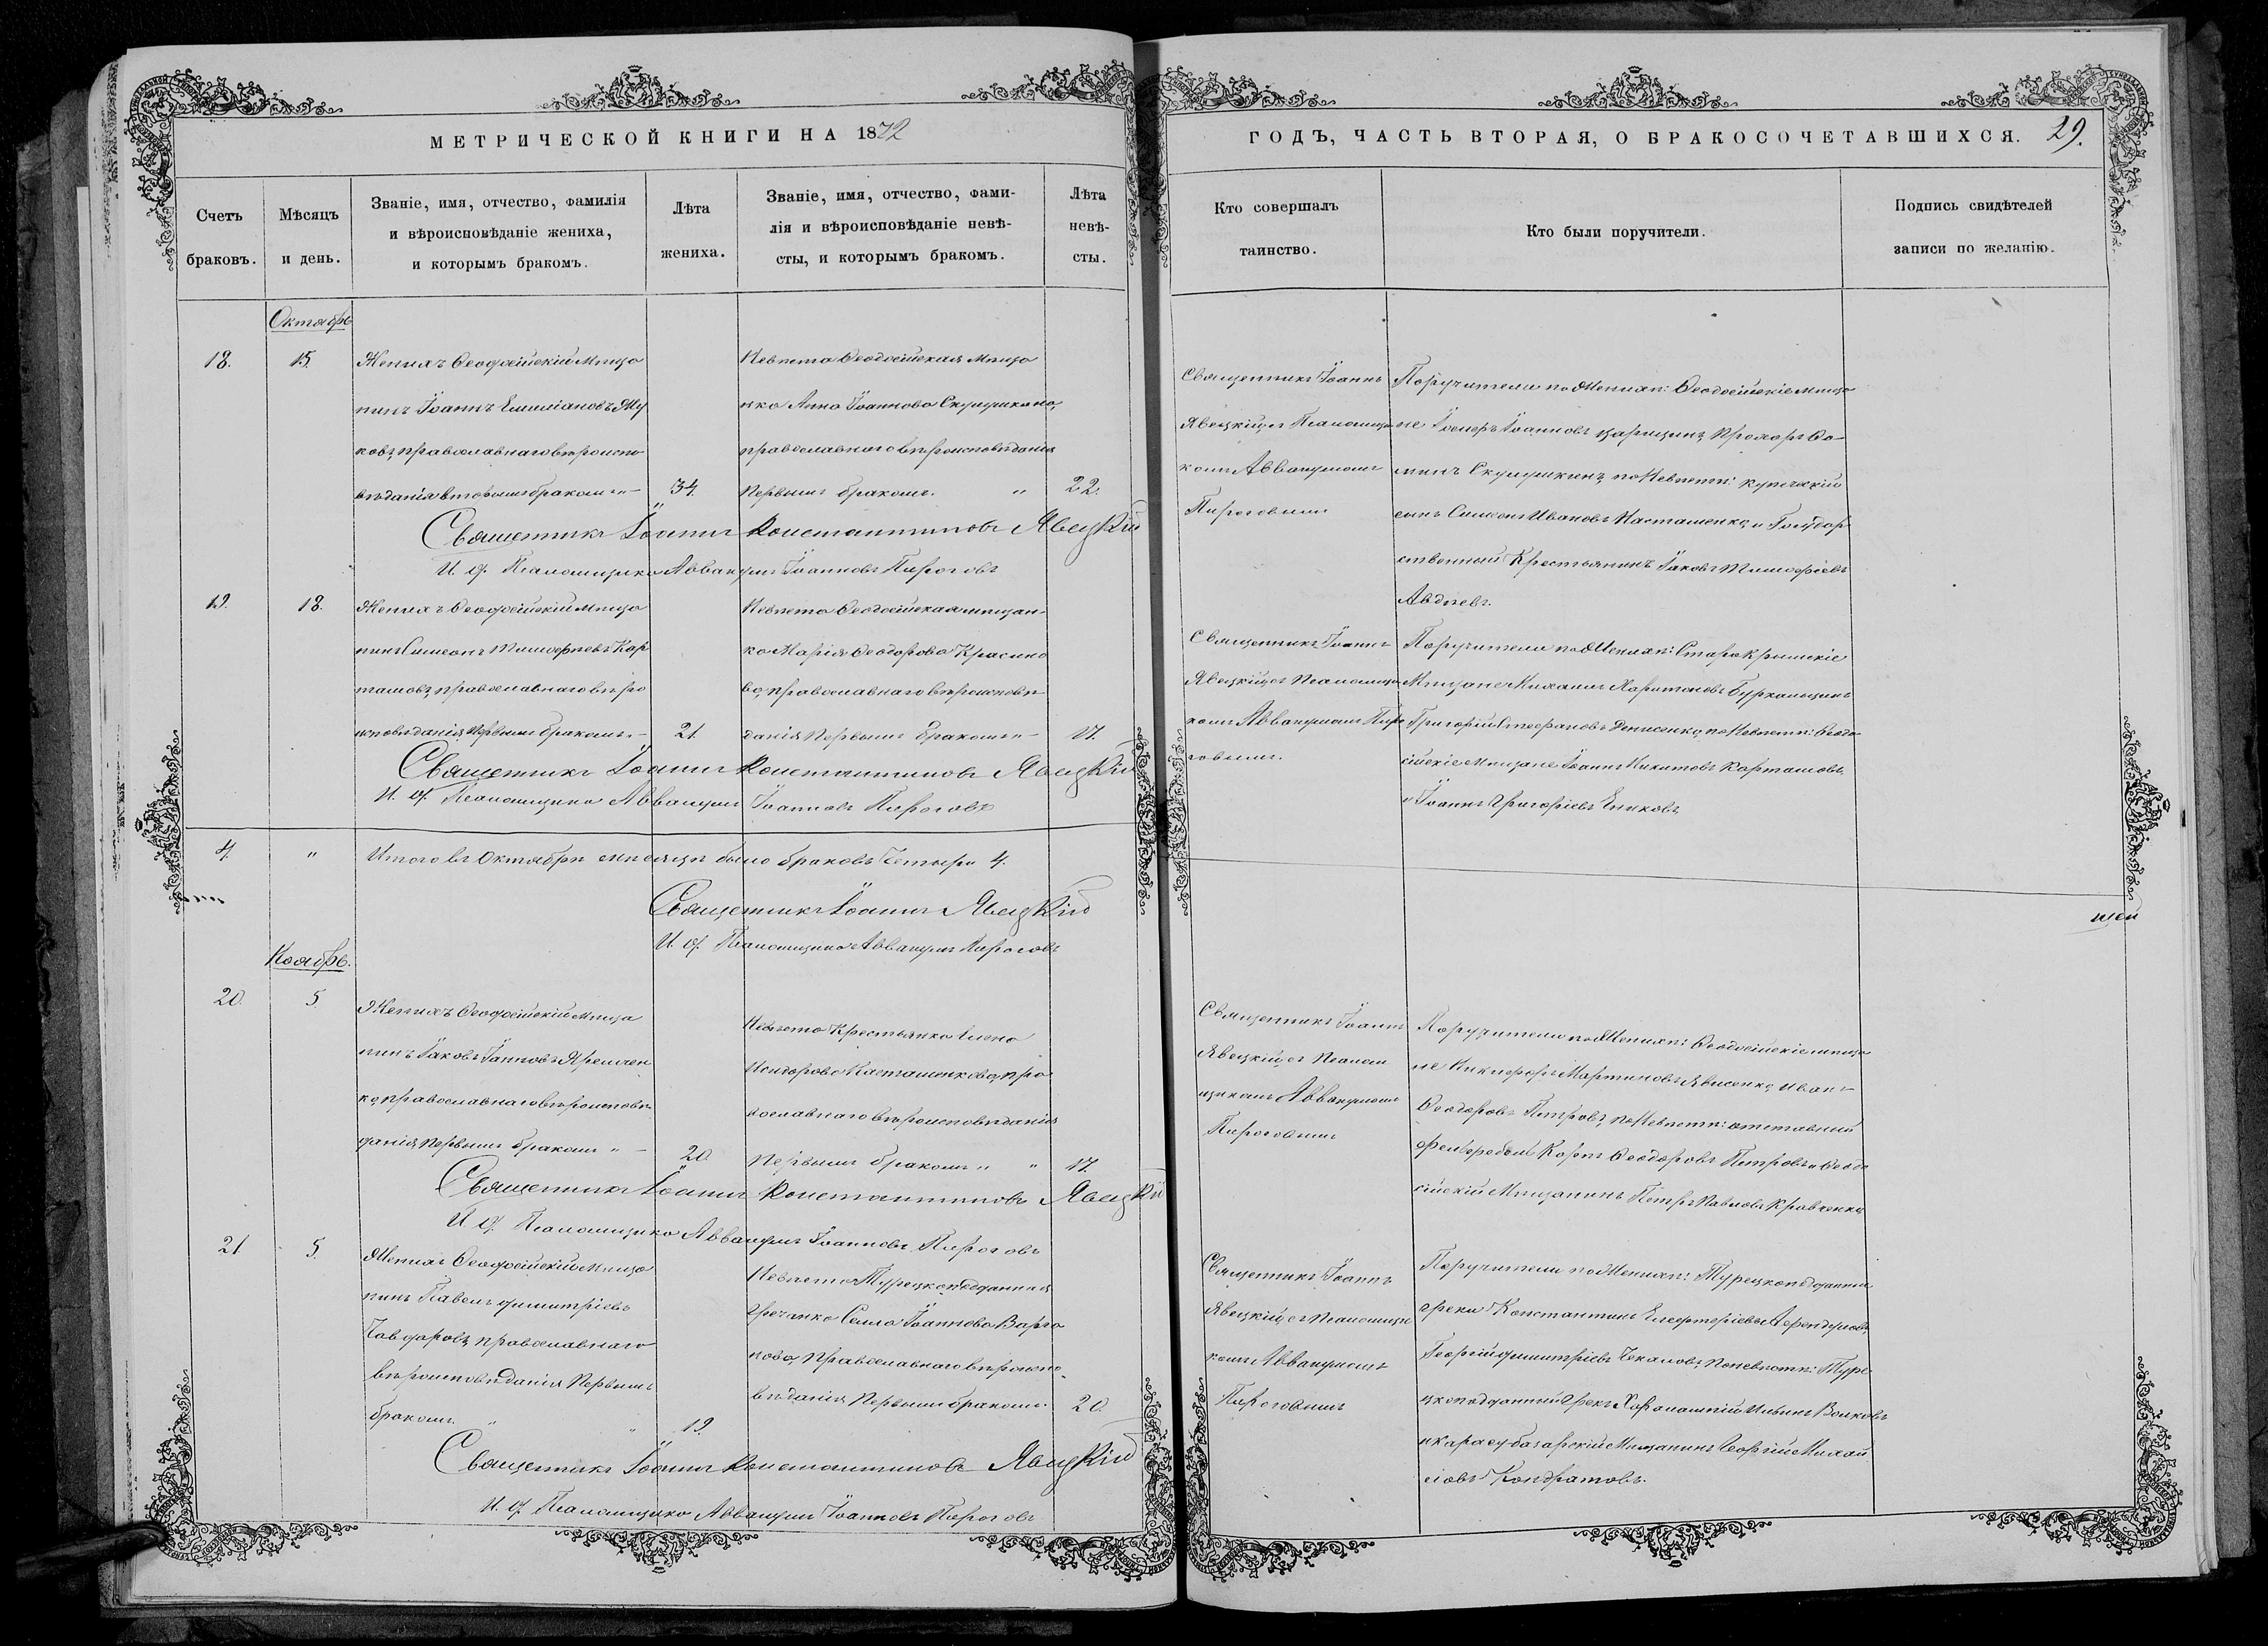 МЕТРИЧЕСКОЙ КНИГИ НА 1872
ГОДЪ, ЧАСТЬ ВТОРАЯ, О БРАКОСОЧЕТАВШИХСЯ. 29.
Счетъ
браковъ.
Мѣсяцъ
и день.
Званіе, имя, отчество, фамилія
и вѣроисповѣданіе жениха,
и которымъ бракомъ.
Лѣта
жениха.
Званіе, имя, отчество, фами-
лія и вѣроисповѣданіе невѣ-
сты, и которымъ бракомъ.
Лѣта
невѣ-
сты.
Кто совершалъ
таинство.
Кто были поручители.
Подпись свидѣтелей
записи по желанію.
Октябрь
18. 15.
Женихъ Ѳеодосійскій Мѣща
нинъ Іоаннъ Емиліановъ Жу
ковъ, православнаго вѣроиспо
вѣданія вторымъ бракомъ " 34.
Невѣста Ѳеодосійская Мѣща
нка Анна Іоаннова
православнаго вѣроисповѣданія
Первымъ бракомъ. " 22.
Священникъ Іоаннъ
Явецкій, съ Псаломщи
комъ Аввакумомъ
Пироговымъ
Поручители по Женихѣ: Ѳеодосійскіе мѣща
не Іоанновъ Прохоръ Ѳо
минъ по Невѣстѣ: купеческій
сынъ Симеонъ Ивановъ Касташенко, и Государ
ственный Крестьянинъ Іаковъ Тимоѳеевъ
Авдѣевъ.
Священникъ Іоаннъ Константиновъ Явецкій
И. д. Псаломщика Аввакумъ Іоанновъ Пироговъ
19. 18.
Женихъ Ѳеодосійскій Мѣща
нинъ Симеонъ Тимоѳеевъ Кар
ташовъ, православнаго вѣро
исповѣданія, Первымъ бракомъ 21.
Невѣста Ѳеодосійская мѣщан
ка Марія Ѳеодорова Краснико
ва, православнаго вѣроисповѣ
данія Первымъ бракомъ 17.
Священникъ Іоаннъ
Явецкій, съ Псаломщи
комъ Аввакумомъ Пиро
говымъ.
Поручители по Женихѣ: СтароКрымскіе
Мѣщане Михаилъ Харитоновъ
Григорій Стефановъ Денисенко, по Невѣстѣ: Ѳеодо
сійскіе Мѣщане Іоаннъ Никитовъ Карташовъ,
и Іоаннъ Григоріевъ
Священникъ Іоаннъ Константиновъ Явецкій
И. д. Псаломщика Аввакумъ Іоанновъ Пироговъ
4. " Итого въ Октябрѣ мѣсяцѣ было браковъ Четыре 4.
Священникъ Іоаннъ Явецкій
И. д. Псаломщика Аввакумъ Пироговъ
Ноябрь.
20. 5
Женихъ Ѳеодосійскій Мѣща
нинъ Іаковъ Яремчен
ко, православнаго вѣроисповѣ
данія, Первымъ бракомъ " 20.
Невѣста Крестьянка Елена
Исидорова Касташенкова, пра
вославнаго вѣроисповѣданія
Первымъ бракомъ " " 17.
Священникъ Іоаннъ
Явецкій, съ Псалом
щикомъ Аввакумомъ
Пироговымъ
Поручители по Женихѣ: Ѳеодосійскіе мѣща
не Никифоръ Мартиновъ Иванъ
Ѳеодоровъ Петровъ, по Невѣстѣ: отставный
Карпъ Ѳеодоровъ Петровъ и Ѳеодо
сійскій Мѣщанинъ Петръ Павловъ Кравченко
Священникъ Іоаннъ Константиновъ Явецкій
И. д. Псаломщика Аввакумъ Іоанновъ Пироговъ
21 5.
Женихъ Ѳеодосійскій Мѣща
нинъ Павелъ Димитріевъ
Чавдаровъ, православнаго
вѣроисповѣданія Первымъ
бракомъ. " " 19.
Невѣста Турецкоподданная
Гречанка Іоаннова
православнаго вѣроиспо
вѣданія Первымъ бракомъ. 20.
Священникъ Іоаннъ
Явецкій, съ Псаломщи
комъ Аввакумомъ
Пироговымъ
Поручители по Женихѣ: Турецкоподданные
греки Константинъ Елефтеріевъ
Георгій Димитріевъ Чекаловъ, по невѣстѣ: Туре
цкоподданный Грекъ Харалампій Ильинъ Волковъ
и карасубазарскій Мѣщанинъ Георгій Михай
ловъ Кондратовъ.
Священникъ Іоаннъ Константиновъ Явецкій
И. д. Псаломщика Аввакумъ Іоанновъ Пироговъ